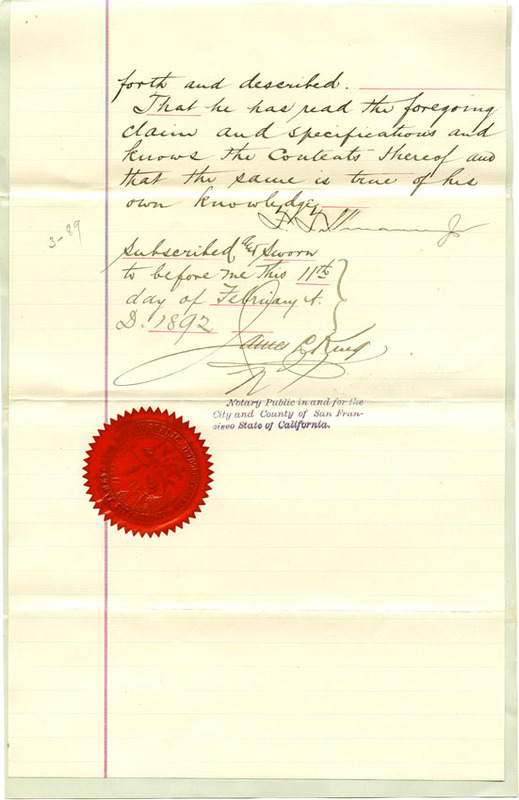 forth and described.
That he has read the foregoing
claim and specifications and
knows the Contents thereof and
that the same is true of his
own knowledge
Jr
3-89
Subscribed & Sworn
to before me this 11th
day of February A.
D. 1892
James L. King
Notary Public in and for the
City and County of San Fran-
cisco State of California.